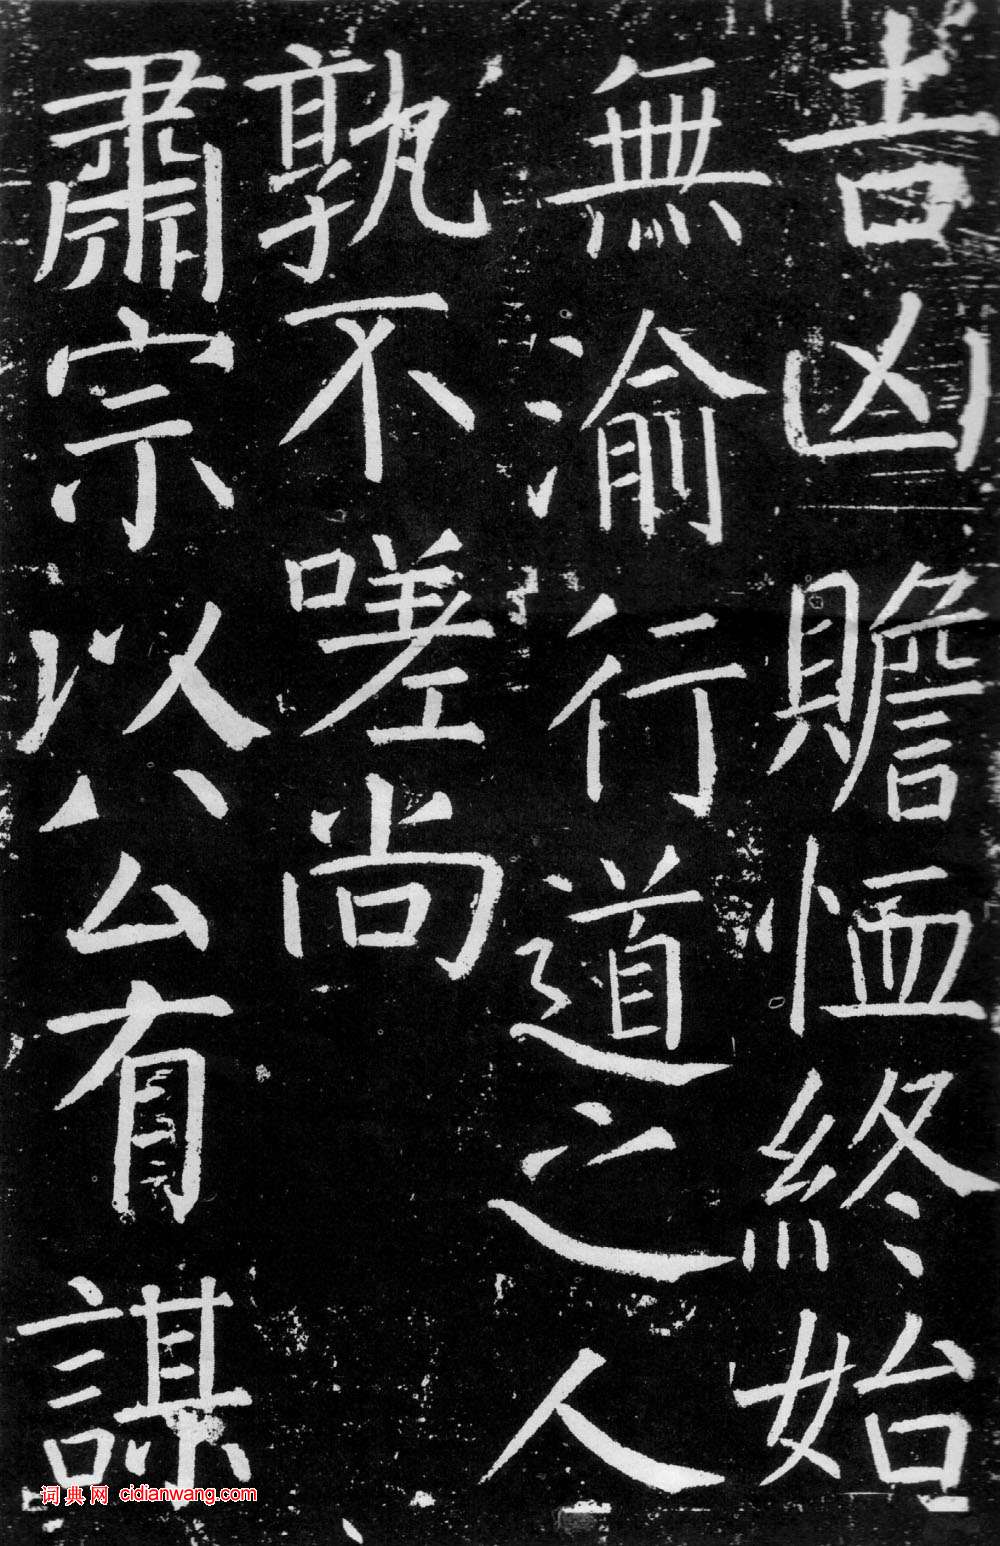 吉凶贍恤終始
無渝行道之人
孰不嗟尚
肅宗以公有謀
词典网 cidianwang.com